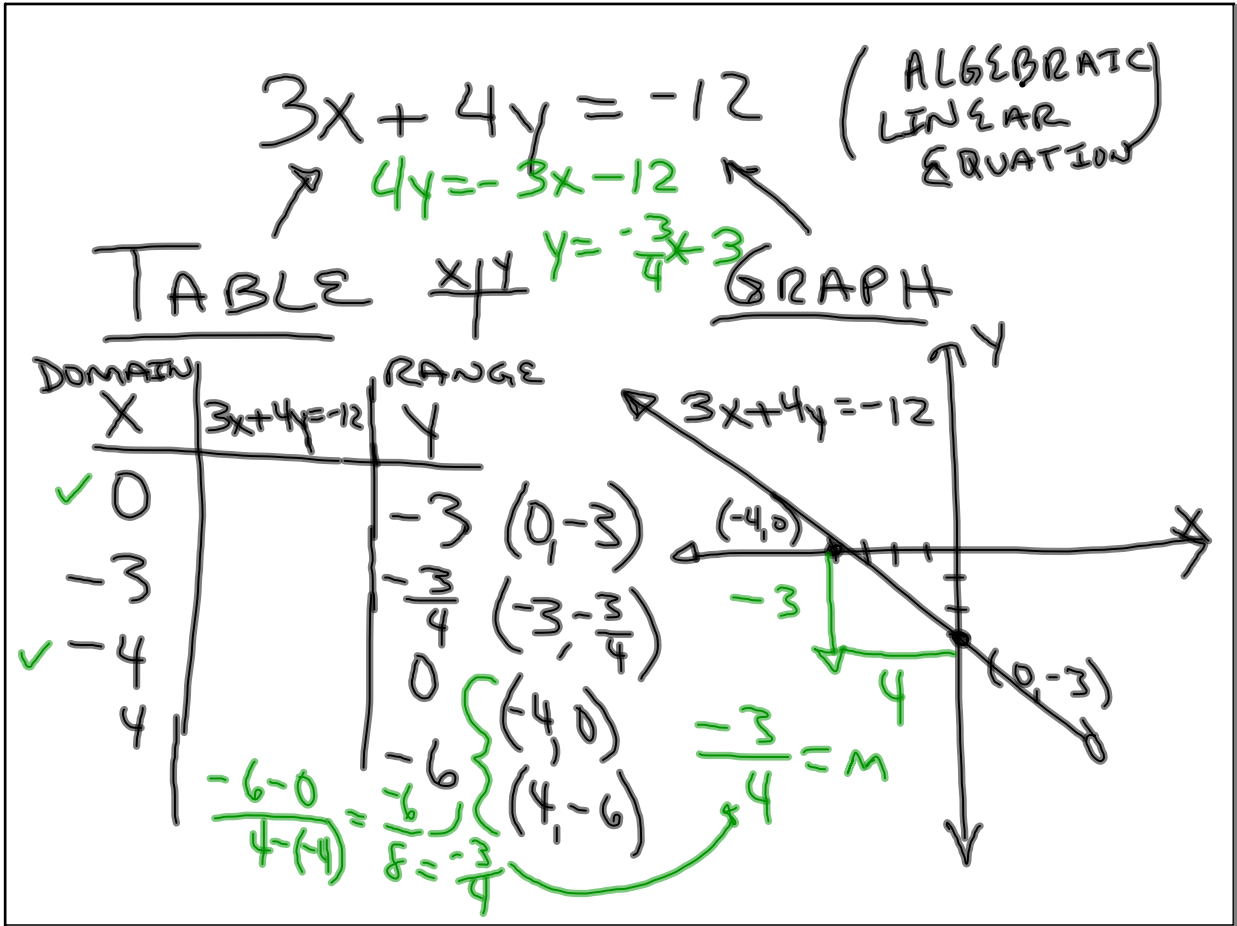 3x + 4y = -12
(ALGEBRAIC
LINEAR
EQUATION)
4y = -3x - 12
y = -3/4 x - 3
TABLE
x | y
GRAPH
DOMAIN
RANGE
X
3x+4y=-12
Y
0
-3
(0, -3)
-3
-3/4
(-3, -3/4)
-4
0
(-4, 0)
4
-6
(4, -6)
-6-0/4-(-4) = -6/8 = -3/4
Y
3x+4y=-12
(-4, 0)
X
-3
4
(0, -3)
-3/4 = m